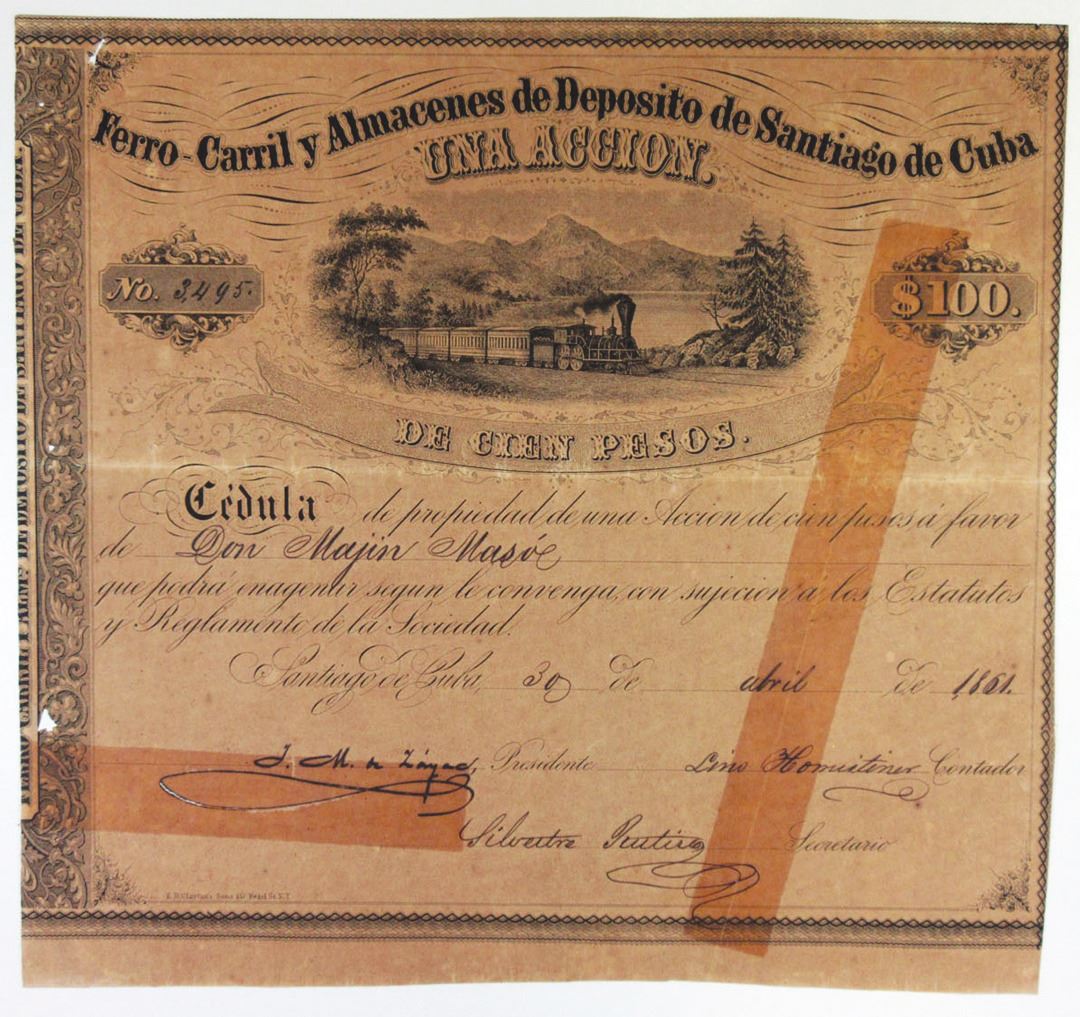 Ferro-Carril y Almacenes de Deposito de Santiago de Cuba
UNA ACCION.
No. 3495.
$100.
DE CIEN PESOS.
Cédula de propiedad de una Accion de cien pesos á favor
de Don Majin Masó
que podrá enagenar segun le convenga, con sujecion á los Estatutos
y Reglamento de la Sociedad.
Santiago de Cuba, 30 de abril de 1861.
J. M. de Zayas, Presidente
Lino Contador
Silvestre Secretario